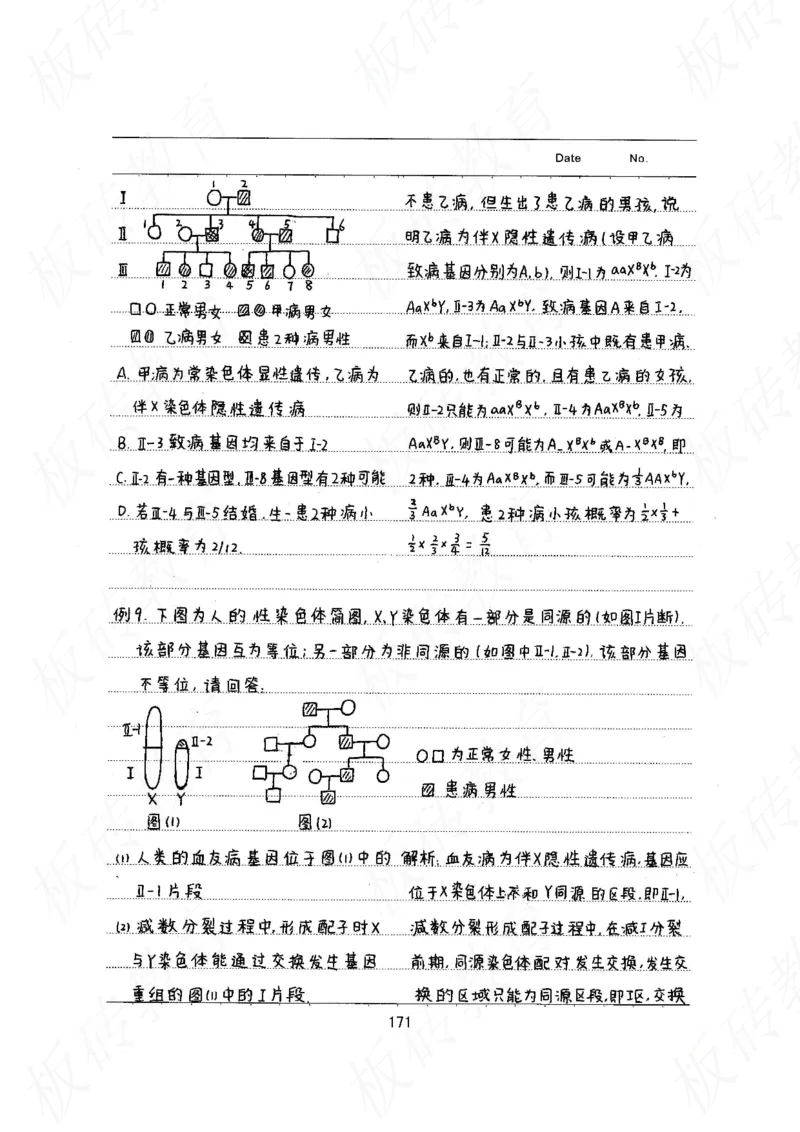 Date No.
I 1 2
II 1 2 3 4 5 6
III
1 2 3 4 5 6 7 8
□○正常男女 甲病男女
乙病男女 患2种病男性
A. 甲病为常染色体显性遗传，乙病为
伴X染色体隐性遗传病
B. II-3致病基因均来自于I-2
C. II-2有一种基因型，III-8基因型有2种可能
D. 若III-4与III-5结婚，生一患2种病小
孩概率为2/12.
不患乙病，但生出了患乙病的男孩，说
明乙病为伴X隐性遗传病(设甲乙病
致病基因分别为A、b)，则I-1为aaXᴮXᵇ. I-2为
AaXᵇY, II-3为AaXᵇY. 致病基因A来自I-2，
而Xᵇ来自I-1; II-2与II-3小孩中既有患甲病、
乙病的，也有正常的，且有患乙病的女孩，
则II-2只能为aaXᴮXᵇ, II-4为AaXᴮXᵇ, II-5为
AaXᴮY, 则III-8可能为A_XᴮXᵇ或A-XᴮXᴮ, 即
2种, III-4为AaXᴮXᵇ, 而III-5可能为1/3AAXᵇY,
2/3AaXᵇY, 患2种病小孩概率为1/2×1/3+
1/2×2/3×3/4=5/12
例9. 下图为人的性染色体简图，X、Y染色体有一部分是同源的(如图I片断)，
该部分基因互为等位；另一部分为非同源的(如图中II-1, II-2)，该部分基因
不等位，请回答：
II-1
II-2
I I
X Y
图(1) 图(2)
○□为正常女性、男性
患病男性
(1) 人类的血友病基因位于图(1)中的
II-1片段
(2) 减数分裂过程中，形成配子时X
与Y染色体能通过交换发生基因
重组的图(1)中的I片段.
解析：血友病为伴X隐性遗传病，基因应
位于X染色体上不和Y同源的区段，即II-1，
减数分裂形成配子过程中，在减I分裂
前期，同源染色体配对发生交换，发生交
换的区域只能为同源区段，即I区，交换
171
板砖教育